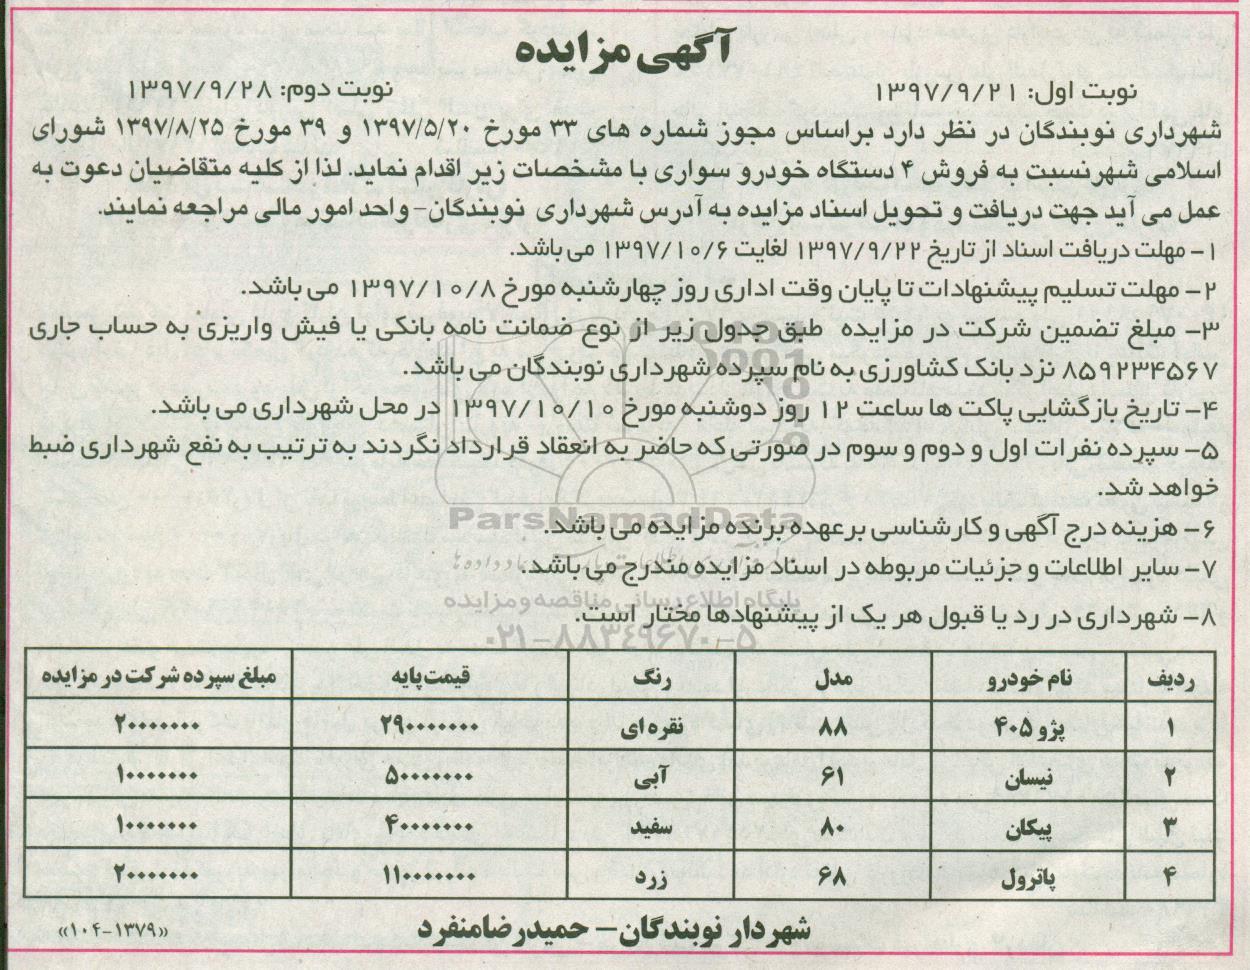 آگهی مزایده
نوبت اول: ۱۳۹۷/۹/۲۱
نوبت دوم: ۱۳۹۷/۹/۲۸
شهرداری نوبندگان در نظر دارد براساس مجوز شماره های ۳۳ مورخ ۱۳۹۷/۵/۲۰ و ۳۹ مورخ ۱۳۹۷/۸/۲۵ شورای
اسلامی شهر نسبت به فروش ۴ دستگاه خودرو سواری با مشخصات زیر اقدام نماید. لذا از کلیه متقاضیان دعوت به
عمل می آید جهت دریافت و تحویل اسناد مزایده به آدرس شهرداری نوبندگان- واحد امور مالی مراجعه نمایند.
۱- مهلت دریافت اسناد از تاریخ ۱۳۹۷/۹/۲۲ لغایت ۱۳۹۷/۱۰/۶ می باشد.
۲- مهلت تسلیم پیشنهادات تا پایان وقت اداری روز چهارشنبه مورخ ۱۳۹۷/۱۰/۸ می باشد.
۳- مبلغ تضمین شرکت در مزایده طبق جدول زیر از نوع ضمانت نامه بانکی یا فیش واریزی به حساب جاری
۸۵۹۲۳۴۵۶۷ نزد بانک کشاورزی به نام سپرده شهرداری نوبندگان می باشد.
۴- تاریخ بازگشایی پاکت ها ساعت ۱۲ روز دوشنبه مورخ ۱۳۹۷/۱۰/۱۰ در محل شهرداری می باشد.
۵- سپرده نفرات اول و دوم و سوم در صورتی که حاضر به انعقاد قرارداد نگردند به ترتیب به نفع شهرداری ضبط
خواهد شد.
۶- هزینه درج آگهی و کارشناسی بر عهده برنده مزایده می باشد.
ParsNamadData
۷- سایر اطلاعات و جزئیات مربوطه در اسناد مزایده مندرج می باشد.
پایگاه اطلاع رسانی مناقصه و مزایده
۸- شهرداری در رد یا قبول هر یک از پیشنهادها مختار است.
۰۲۱-۸۸۳۴۹۶۷۰-۵
ردیف نام خودرو مدل رنگ قیمت پایه مبلغ سپرده شرکت در مزایده
۱ پژو ۴۰۵ ۸۸ نقره ای ۲۹۰۰۰۰۰۰۰ ۲۰۰۰۰۰۰۰
۲ نیسان ۶۱ آبی ۵۰۰۰۰۰۰۰ ۱۰۰۰۰۰۰۰
۳ پیکان ۸۰ سفید ۴۰۰۰۰۰۰۰ ۱۰۰۰۰۰۰۰
۴ پاترول ۶۸ زرد ۱۱۰۰۰۰۰۰۰ ۲۰۰۰۰۰۰۰
شهردار نوبندگان- حمیدرضا منفرد
«۱۰۴-۱۳۷۹»